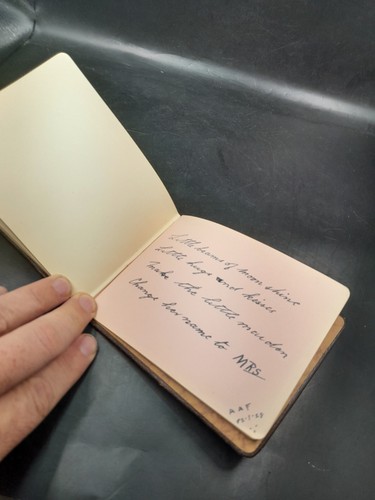 Little beams of moon shine
Little hugs and kisses
Make the little maiden
Change her name to MRS